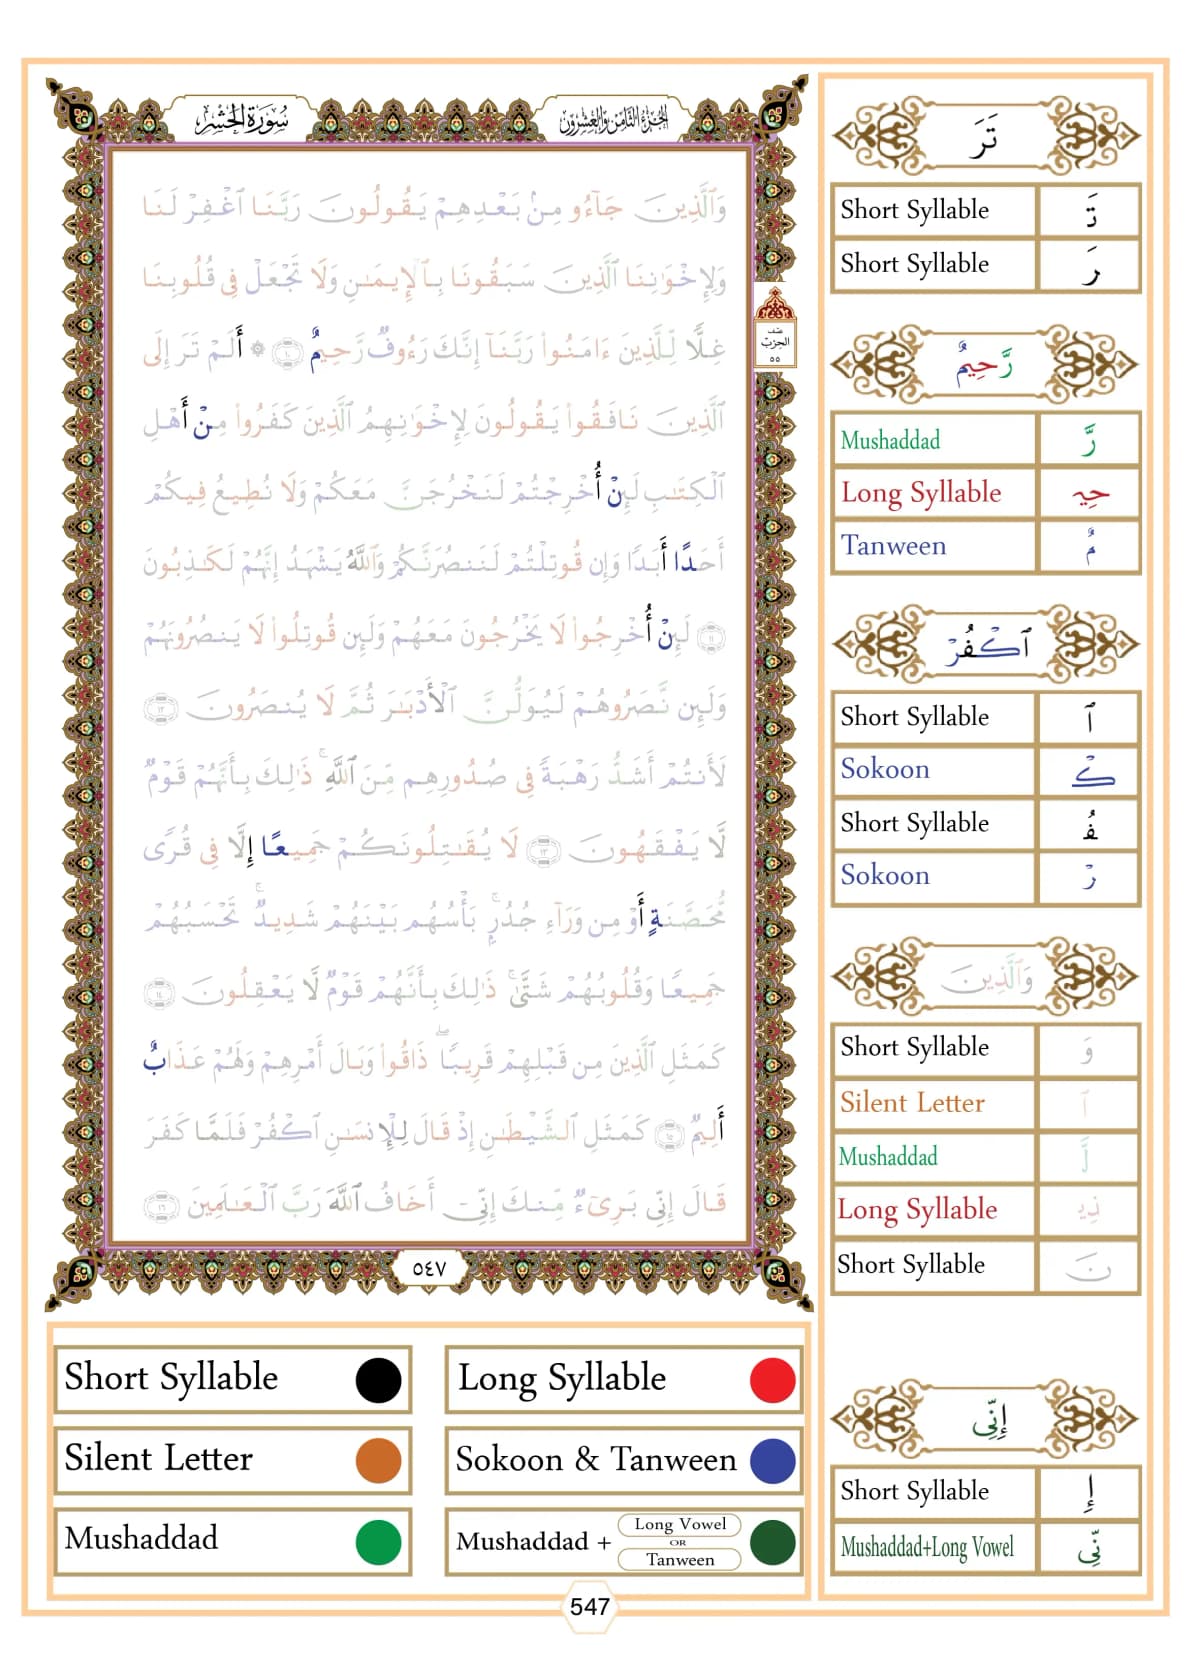 سُورَةُ الحَشْرِ
الجُزْءُ الثَّامِنُ وَالعِشْرُونَ
وَٱلَّذِينَ جَآءُو مِنۢ بَعْدِهِمْ يَقُولُونَ رَبَّنَا ٱغْفِرْ لَنَا
وَلِإِخْوَٰنِنَا ٱلَّذِينَ سَبَقُونَا بِٱلْإِيمَٰنِ وَلَا تَجْعَلْ فِى قُلُوبِنَا
غِلًّا لِّلَّذِينَ ءَامَنُوا۟ رَبَّنَآ إِنَّكَ رَءُوفٌ رَّحِيمٌ ١٠ ۞ أَلَمْ تَرَ إِلَى
ٱلَّذِينَ نَافَقُوا۟ يَقُولُونَ لِإِخْوَٰنِهِمُ ٱلَّذِينَ كَفَرُوا۟ مِنْ أَهْلِ
ٱلْكِتَٰبِ لَئِنْ أُخْرِجْتُمْ لَنَخْرُجَنَّ مَعَكُمْ وَلَا نُطِيعُ فِيكُمْ
أَحَدًا أَبَدًا وَإِن قُوتِلْتُمْ لَنَنصُرَنَّكُمْ وَٱللَّهُ يَشْهَدُ إِنَّهُمْ لَكَٰذِبُونَ
١١ لَئِنْ أُخْرِجُوا۟ لَا يَخْرُجُونَ مَعَهُمْ وَلَئِن قُوتِلُوا۟ لَا يَنصُرُونَهُمْ
وَلَئِن نَّصَرُوهُمْ لَيُوَلُّنَّ ٱلْأَدْبَٰرَ ثُمَّ لَا يُنصَرُونَ ١٢
لَأَنتُمْ أَشَدُّ رَهْبَةً فِى صُدُورِهِم مِّنَ ٱللَّهِ ۚ ذَٰلِكَ بِأَنَّهُمْ قَوْمٌ
لَّا يَفْقَهُونَ ١٣ لَا يُقَٰتِلُونَكُمْ جَمِيعًا إِلَّا فِى قُرًى
مُّحَصَّنَةٍ أَوْ مِن وَرَآءِ جُدُرٍۭ ۚ بَأْسُهُم بَيْنَهُمْ شَدِيدٌ ۚ تَحْسَبُهُمْ
جَمِيعًا وَقُلُوبُهُمْ شَتَّىٰ ۚ ذَٰلِكَ بِأَنَّهُمْ قَوْمٌ لَّا يَعْقِلُونَ ١٤
كَمَثَلِ ٱلَّذِينَ مِن قَبْلِهِمْ قَرِيبًا ۖ ذَاقُوا۟ وَبَالَ أَمْرِهِمْ وَلَهُمْ عَذَابٌ
أَلِيمٌ ١٥ كَمَثَلِ ٱلشَّيْطَٰنِ إِذْ قَالَ لِلْإِنسَٰنِ ٱكْفُرْ فَلَمَّا كَفَرَ
قَالَ إِنِّى بَرِىٓءٌ مِّنكَ إِنِّىٓ أَخَافُ ٱللَّهَ رَبَّ ٱلْعَٰلَمِينَ ١٦
٥٤٧
نصف
الحزب
٥٥
تَرَ
Short Syllable تَ
Short Syllable رَ
رَّحِيمٌ
Mushaddad رَّ
Long Syllable حِيـ
Tanween مٌ
ٱكْفُرْ
Short Syllable ٱ
Sokoon كْـ
Short Syllable فُـ
Sokoon رْ
وَٱلَّذِينَ
Short Syllable وَ
Silent Letter ٱ
Mushaddad لَّ
Long Syllable ذِيـ
Short Syllable نَ
إِنِّى
Short Syllable إِ
Mushaddad+Long Vowel نِّى
Short Syllable
Long Syllable
Silent Letter
Sokoon & Tanween
Mushaddad
Mushaddad + Long Vowel OR Tanween
547